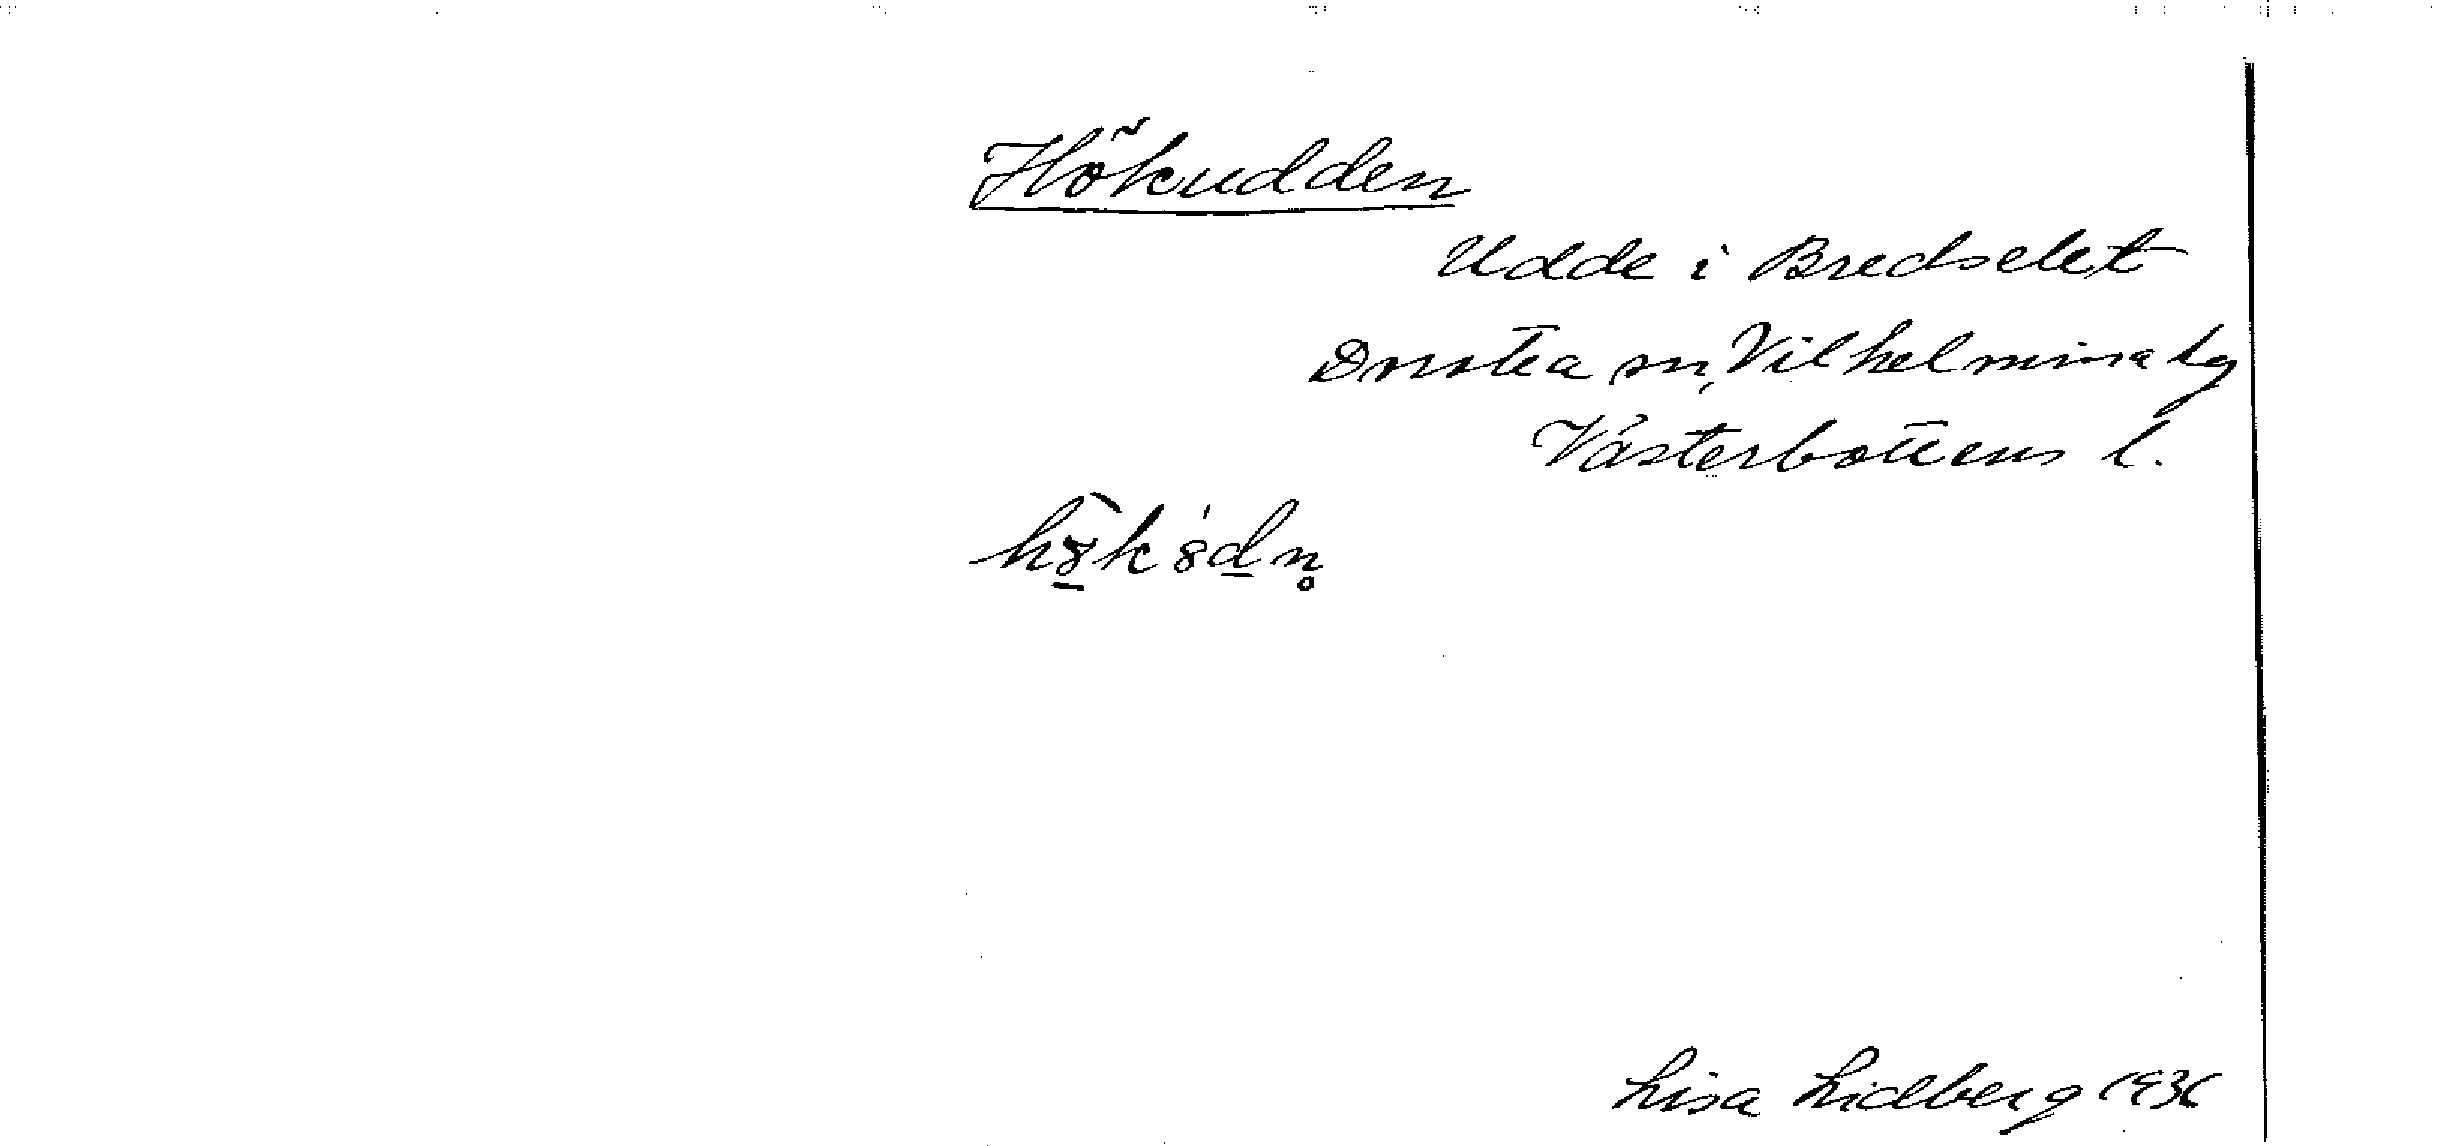 Hökudden
Udde i Bredselet
Dorotea sn, Vilhelmina tg
Västerbottens l.
Lisa Lidberg 1936